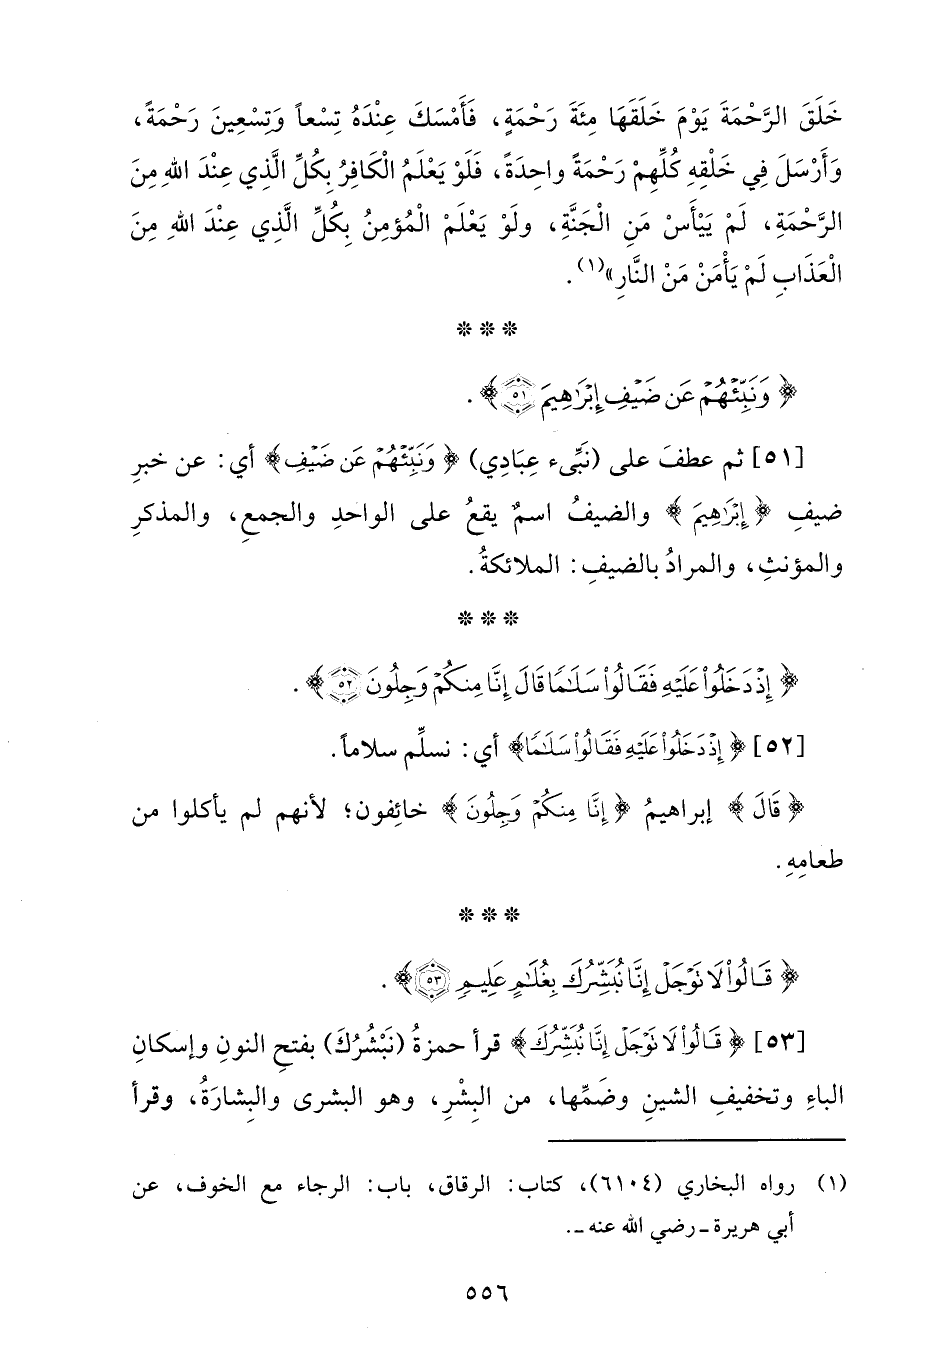 خَلَقَ الرَّحْمَةَ يَوْمَ خَلَقَهَا مِئَةَ رَحْمَةٍ، فَأَمْسَكَ عِنْدَهُ تِسْعاً وَتِسْعِينَ رَحْمَةً،
وَأَرْسَلَ فِي خَلْقِهِ كُلِّهِمْ رَحْمَةً واحِدَةً، فَلَوْ يَعْلَمُ الْكَافِرُ بِكُلِّ الَّذِي عِنْدَ اللهِ مِنَ
الرَّحْمَةِ، لَمْ يَيْأَسْ مَنِ الْجَنَّةِ، ولَوْ يَعْلَمْ الْمُؤمِنُ بِكُلِّ الَّذِي عِنْدَ اللهِ مِنَ
الْعَذَابِ لَمْ يَأْمَنْ مَنْ النَّارِ»(١).
***
﴿وَنَبِّئْهُمْ عَن ضَيْفِ إِبْرَٰهِيمَ ٥١﴾.
[٥١] ثم عطفَ على (نَبِّىء عِبَادِي) ﴿وَنَبِّئْهُمْ عَن ضَيْفِ﴾ أي: عن خبرِ
ضيفِ ﴿إِبْرَٰهِيمَ﴾ والضيفُ اسمٌ يقعُ على الواحدِ والجمعِ، والمذكرِ
والمؤنثِ، والمرادُ بالضيفِ: الملائكةُ.
***
﴿إِذْ دَخَلُواْ عَلَيْهِ فَقَالُواْ سَلَٰمًا قَالَ إِنَّا مِنكُمْ وَجِلُونَ ٥٢﴾.
[٥٢] ﴿إِذْ دَخَلُواْ عَلَيْهِ فَقَالُواْ سَلَٰمًا﴾ أي: نسلِّم سلاماً.
﴿قَالَ﴾ إبراهيمُ ﴿إِنَّا مِنكُمْ وَجِلُونَ﴾ خائِفون؛ لأنهم لم يأكلوا من
طعامِهِ.
***
﴿قَالُواْ لَا تَوْجَلْ إِنَّا نُبَشِّرُكَ بِغُلَٰمٍ عَلِيمٍ ٥٣﴾.
[٥٣] ﴿قَالُواْ لَا تَوْجَلْ إِنَّا نُبَشِّرُكَ﴾ قرأ حمزةُ (نَبْشُرُكَ) بفتحِ النونِ وإسكانِ
الباءِ وتخفيفِ الشينِ وضَمِّها، من البِشْرِ، وهو البشرى والبِشارَةُ، وقرأ
(١) رواه البخاري (٦١٠٤)، كتاب: الرقاق، باب: الرجاء مع الخوف، عن
أبي هريرة ـ رضي الله عنه ـ.
٥٥٦